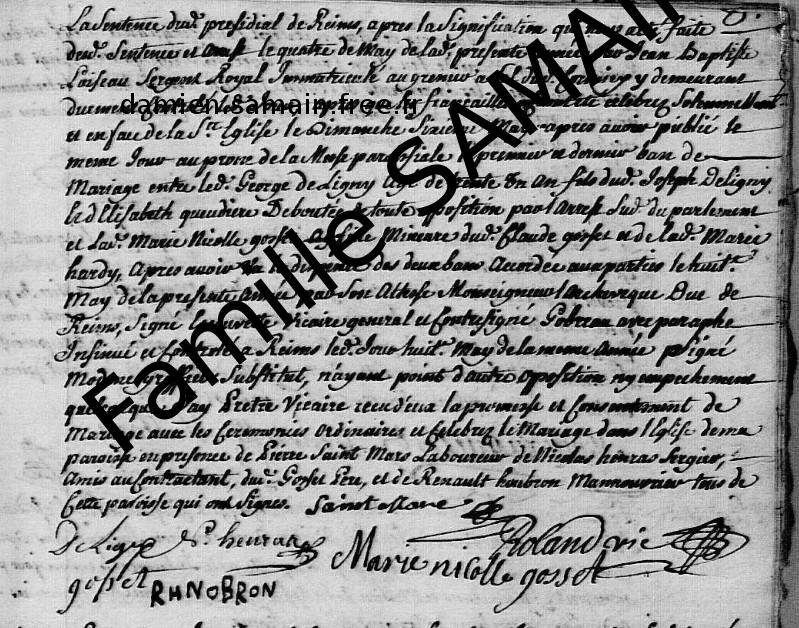 La Sentence dud. presidial de Reims, apres la Signification qui leur a eté faite
dud. Sentence et arrest le quatre de May de la d. presente Année par Jean Baptiste
Loiseau Sergent Royal Immatricule au grenier a Sel y demeurant
les fiançailles ont été celebrez Solennellement
et en face de la Ste Eglise le Dimanche Sixieme May apres avoir publié le
meme Jour au prone de la Messe paroissiale le premier et dernier ban de
Mariage entre led. George de Ligny agé de trente Un An fils dud. Joseph Deligny
et d'Elisabeth queudiere Deboutez de toute opposition par l'Arrest Sud. du parlement
et Lad. Marie Nicolle gosset fille Mineure dud. Claude gosset et de lad. Marie
hardy, Apres avoir Vu la dispence des deux bans Accordée aux parties le huit.
May de la presente Année par Son Altesse Monseigneur l'Archeveque Duc de
Reims, Signé Vicaire general et Contresigné avec paraphe
Insinué et Controllé a Reims led. Jour huit. May de la meme Année Signé
Substitut, n'ayant point d'autre opposition ny empechement
Pretre Vicaire recu d'eux la promesse et Consentement de
Mariage avec les Ceremonies Ordinaires et Celebrez le Mariage dans l'Eglise de ma
paroisse en presence de Pierre Saint Mars Laboureur de Nicolas henras Sergier,
Amis au Contractant, dud. Gosset Pere, et de Renault hnobron Manouvrier tous de
Cette paroisse qui ont Signes. Saint Mare
De Ligny N. henras Roland vic
gosset RHNOBRON Marie nicolle gosset
damien.samain.free.fr
Famille SAMAIN